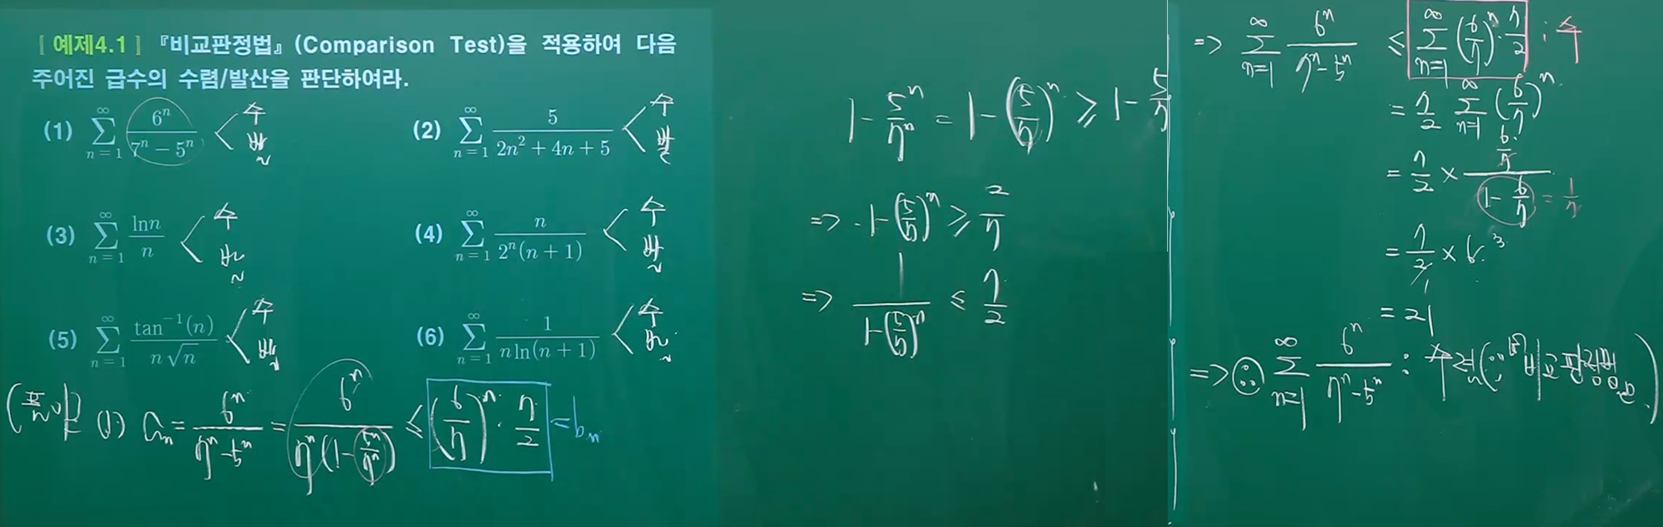 [ 예제4.1 ] 『비교판정법』(Comparison Test)을 적용하여 다음
주어진 급수의 수렴/발산을 판단하여라.
(1) \sum_{n=1}^{\infty} \frac{6^n}{7^n - 5^n} < 수 발
(2) \sum_{n=1}^{\infty} \frac{5}{2n^2+4n+5} < 수 발
(3) \sum_{n=1}^{\infty} \frac{\ln n}{n} < 수 발
(4) \sum_{n=1}^{\infty} \frac{n}{2^n(n+1)} < 수 발
(5) \sum_{n=1}^{\infty} \frac{\tan^{-1}(n)}{n\sqrt{n}} < 수 발
(6) \sum_{n=1}^{\infty} \frac{1}{n\ln(n+1)} < 수 발
(풀이) (1) a_n = \frac{6^n}{7^n-5^n} = \frac{6^n}{7^n(1-\frac{5^n}{7^n})} ≤ (\frac{6}{7})^n · \frac{7}{2} = b_n
1-\frac{5^n}{7^n} = 1-(\frac{5}{7})^n ≥ 1-\frac{5}{7}
=> 1-(\frac{5}{7})^n ≥ \frac{2}{7}
=> \frac{1}{1-(\frac{5}{7})^n} ≤ \frac{7}{2}
=> \sum_{n=1}^{\infty} \frac{6^n}{7^n-5^n} ≤ \sum_{n=1}^{\infty} (\frac{6}{7})^n · \frac{7}{2} : 수
= \frac{7}{2} \sum_{n=1}^{\infty} (\frac{6}{7})^n
= \frac{7}{2} × \frac{\frac{6}{7}}{1-\frac{6}{7}} = \frac{1}{7}
= \frac{7}{2} × 6 3
1
= 21
=> ∴ \sum_{n=1}^{\infty} \frac{6^n}{7^n-5^n} : 수렴 (∵ 비교판정법)